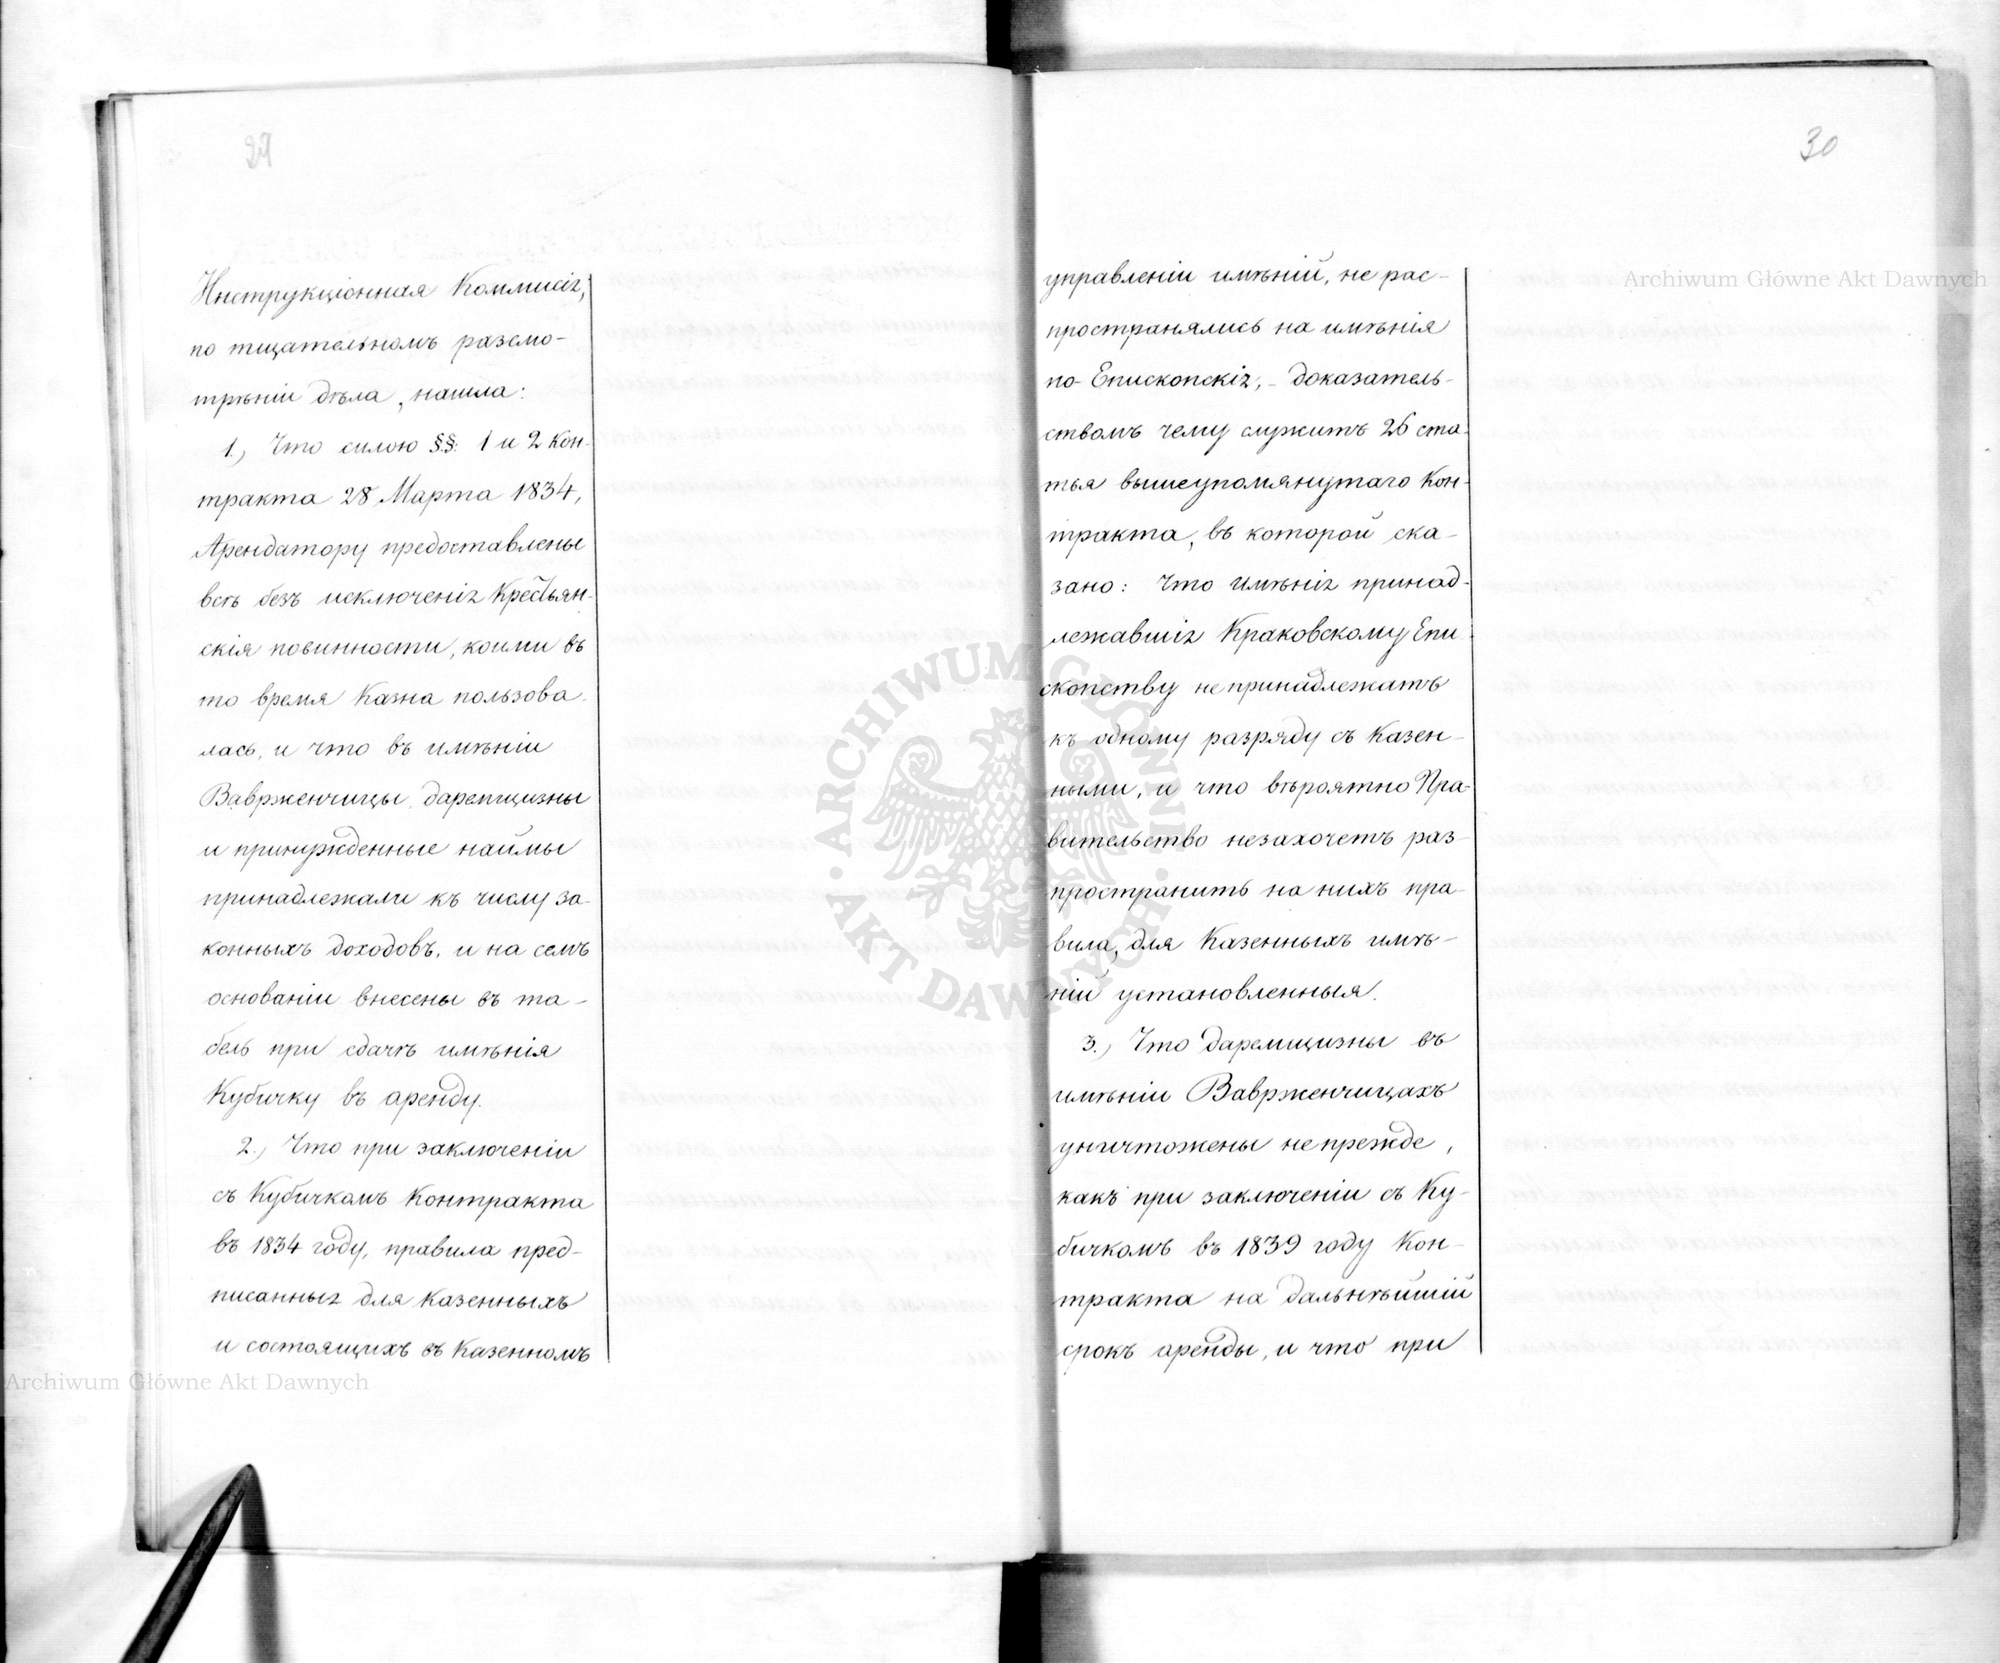 29
Инструкціонная Коммисія,
по тщательномъ разсмо-
трѣніи дѣла, нашла:
1., Что силою §§: 1 и 2 Кон-
тракта 28 Марта 1834,
Арендатору предоставлены
всѣ безъ исключенія Крестьян-
скія повинности, коими въ
то время Казна пользова-
лась, и что въ имѣніи
Ваврженчицы даремщизны
и принужденные наймы
принадлежали къ числу за-
конныхъ доходовъ, и на семъ
основаніи внесены въ та-
бель при сдачѣ имѣнія
Кубичку въ аренду.
2., Что при заключеніи
съ Кубичкомъ Контракта
въ 1834 году, правила пред-
писанныя для Казенныхъ
и состоящихъ въ Казенномъ
30
управленіи имѣній, не рас-
пространялись на имѣнія
по-Епископскія, - доказатель-
ствомъ чему служитъ 26 ста-
тья вышеупомянутаго Кон-
тракта, въ которой ска-
зано: Что Имѣнія принад-
лежавшія Краковскому Епи-
скопству не принадлежатъ
къ одному разряду съ Казен-
ными, и что вѣроятно Пра-
вительство незахочетъ раз-
пространить на нихъ пра-
вила, для Казенныхъ имѣ-
ній установленныя.
3., Что даремщизны въ
имѣніи Ваврженчицахъ
уничтожены не прежде,
какъ при заключеніи съ Ку-
бичкомъ въ 1839 году Кон-
тракта на дальнѣйшій
срокъ аренды, и что при
Archiwum Główne Akt Dawnych
Archiwum Główne Akt Dawnych
ARCHIWUM GŁÓWNE AKT DAWNYCH